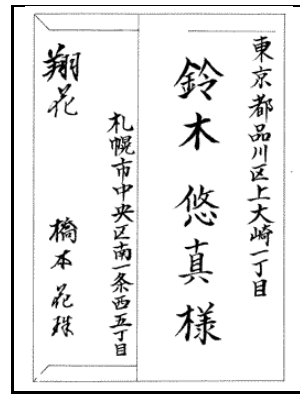 東京都品川区上大崎一丁目
鈴木 悠真 様
札幌市中央区南一条西五丁目
翔花 橋本 花珠